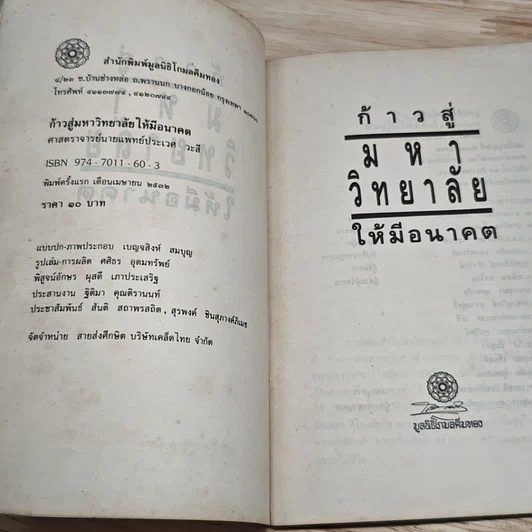 สำนักพิมพ์มูลนิธิโกมลคีมทอง
๘/๒๓ ซ.บ้านช่างหล่อ ถ.พรานนก บางกอกน้อย กรุงเทพฯ
โทรศัพท์ ๔๑๑๓๗๔๔, ๔๑๒๐๗๔๔
ก้าวสู่มหาวิทยาลัยให้มีอนาคต
ศาสตราจารย์นายแพทย์ประเวศ วะสี
ISBN 974-7011-60-3
พิมพ์ครั้งแรก เดือนเมษายน ๒๕๓๒
ราคา ๑๐ บาท
แบบปก-ภาพประกอบ เบญจสิงห์ สมบุญ
รูปเล่ม-การผลิต ศศิธร อุดมทรัพย์
พิสูจน์อักษร ผุสดี เภาประเสริฐ
ประสานงาน ฐิติมา คุณติรานนท์
ประชาสัมพันธ์ สันติ สถาพรสถิต, สุรพงค์ ชินสุภางค์ภิเมธ
จัดจำหน่าย สายส่งศึกษิต บริษัทเคล็ดไทย จำกัด
ก้าวสู่
มหา
วิทยาลัย
ให้มีอนาคต
มูลนิธิโกมลคีมทอง